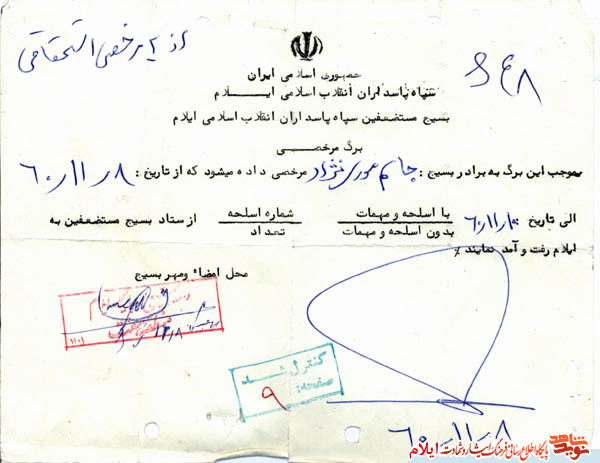 از پرخصی استحقاقی
جمهوری اسلامی ایران
سپاه پاسداران انقلاب اسلامی ایلام
بسیج مستضعفین سپاه پاسداران انقلاب اسلامی ایلام
برگ مرخصی
بموجب این برگ به برادر بسیج: جاسم موری نژاد مرخصی داده میشود که از تاریخ: ۶۰/۱۱/۸
الی تاریخ: ۶۰/۱۱/۱۰ با اسلحه و مهمات شماره اسلحه از ستاد بسیج مستضعفین به
بدون اسلحه و مهمات تعداد
ایلام رفت و آمد نمایند٪
محل امضاء ومهر بسیج
کنترل شد
صفحه: ۹
۶۰/۱۱/۸
نوید شاهد پایگاه اطلاع رسانی فرهنگ ایثار و شهادت ایلام